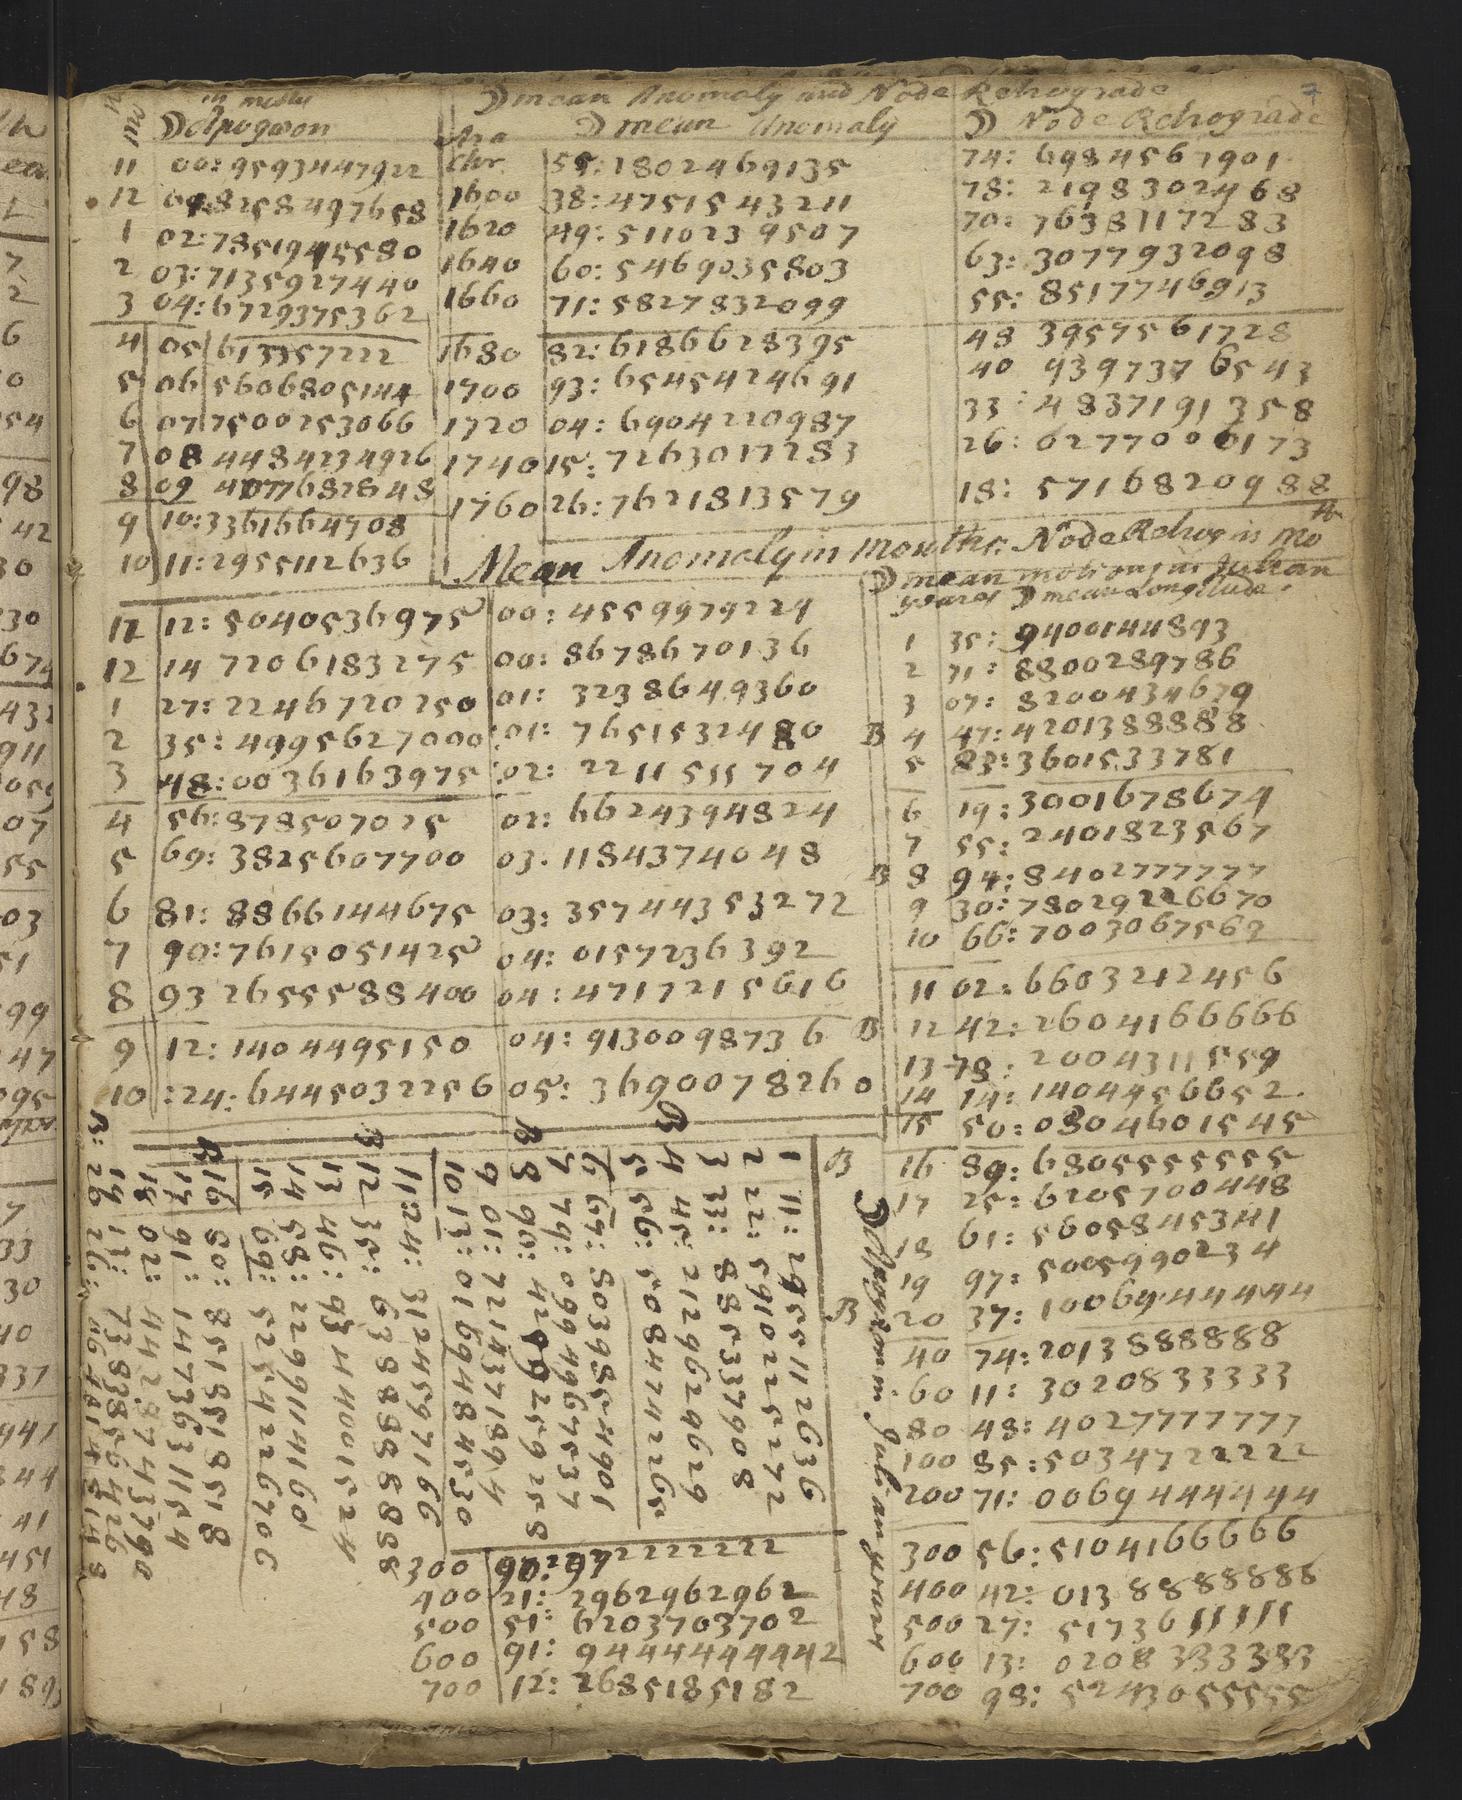 in months
☽ Apogæon
11 00:9593447922
12 01:8258497658
1 02:7851945580
2 03:7135927440
3 04:6729375362
4 05 613357222
5 06 5606805144
6 07 7500253066
7 08 4484234926
8 09 4077682848
9 10:3361664708
10 11:2955112636
☽ mean Anomoly and Node Retrograde
☽ mean Anomoly ☽ Node Retrograde
Chr. 55:1802469135 74: 6984567901
1600 38:4751543211 78: 2198302468
1620 49:5110239507 70: 7638117283
1640 60:5469035803 63:3077932098
1660 71:5827832099 55: 8517746913
1680 82:6186628395 48 3957561728
1700 93:6545424691 40 9397376543
1720 04:6904220987 33:4837191358
1740 15:7263017283 26:0277006173
1760 26:7621813579 18: 5716820988
Mean Anomoly in Months. Node Retrog in Mo
th
11 12:5040536975 00:4559979224
12 14 7206183275 00:8678670136
1 27:2246720250 01: 3238649360
2 35:4995627000 01: 7651532480
3 48:0036163975 02: 2211511704
4 56:878507025 02: 6624394824
5 69:3825607700 03. 1184374048
6 81:8866144675 03:35744353272
7 90:7615051425 04: 0157236392
8 93 2655588400 04:4717215616
9 12:1404495150 04:9130098736
10 :24:6445032256 05: 3690078260
☽ mean motions in Julian
years ☽ mean Longitude.
1 35: 9400144893
2 71: 8800289786
3 07: 8200434679
B 4 47:4201388888
5 83:3601533781
6 19:3001678674
7 55:2401823567
B 8 94:8402777777
9 30:7802922670
10 66:7003067562
11 02:6603212456
B 12 42:2604166666
13 78:2004311559
14 14:1404456652.
15 50:0804601545
B 16 89:6805555555
17 25:6205700448
18 61:5605845341
19 97:5005990234
B 20 37:1006944444
40 74:2013888888
60 11: 3020833333
80 48:4027777777
100 85:5034722222
200 71: 0069444444
300 56:5104166666
400 42: 0138888888
500 27: 5173611111
600 13: 0208333333
700 98: 5243055555
☽ Apogæon in Julian years
1 11: 2955112636
2 22: 5910225272
3 33: 8853337908
B 4 45: 2129629629
5 56: 5084742265
6 67: 8039854901
7 79: 0994967537
B 8 90: 4259259258
9 01: 7214371894
10 13: 0169484530
11 24: 3124597166
B 12 35: 6388888888
13 46: 9344001524
14 58: 2299114160
15 69: 5254226706
B 16 80: 8518518518
17 91: 1473631154
18 02: 4428743790
19 13: 7383856426
B: 20 26:
300 90:67 22222222
400 21: 2962962962
500 51: 6203703702
600 91: 9444444442
700 12: 2685185182